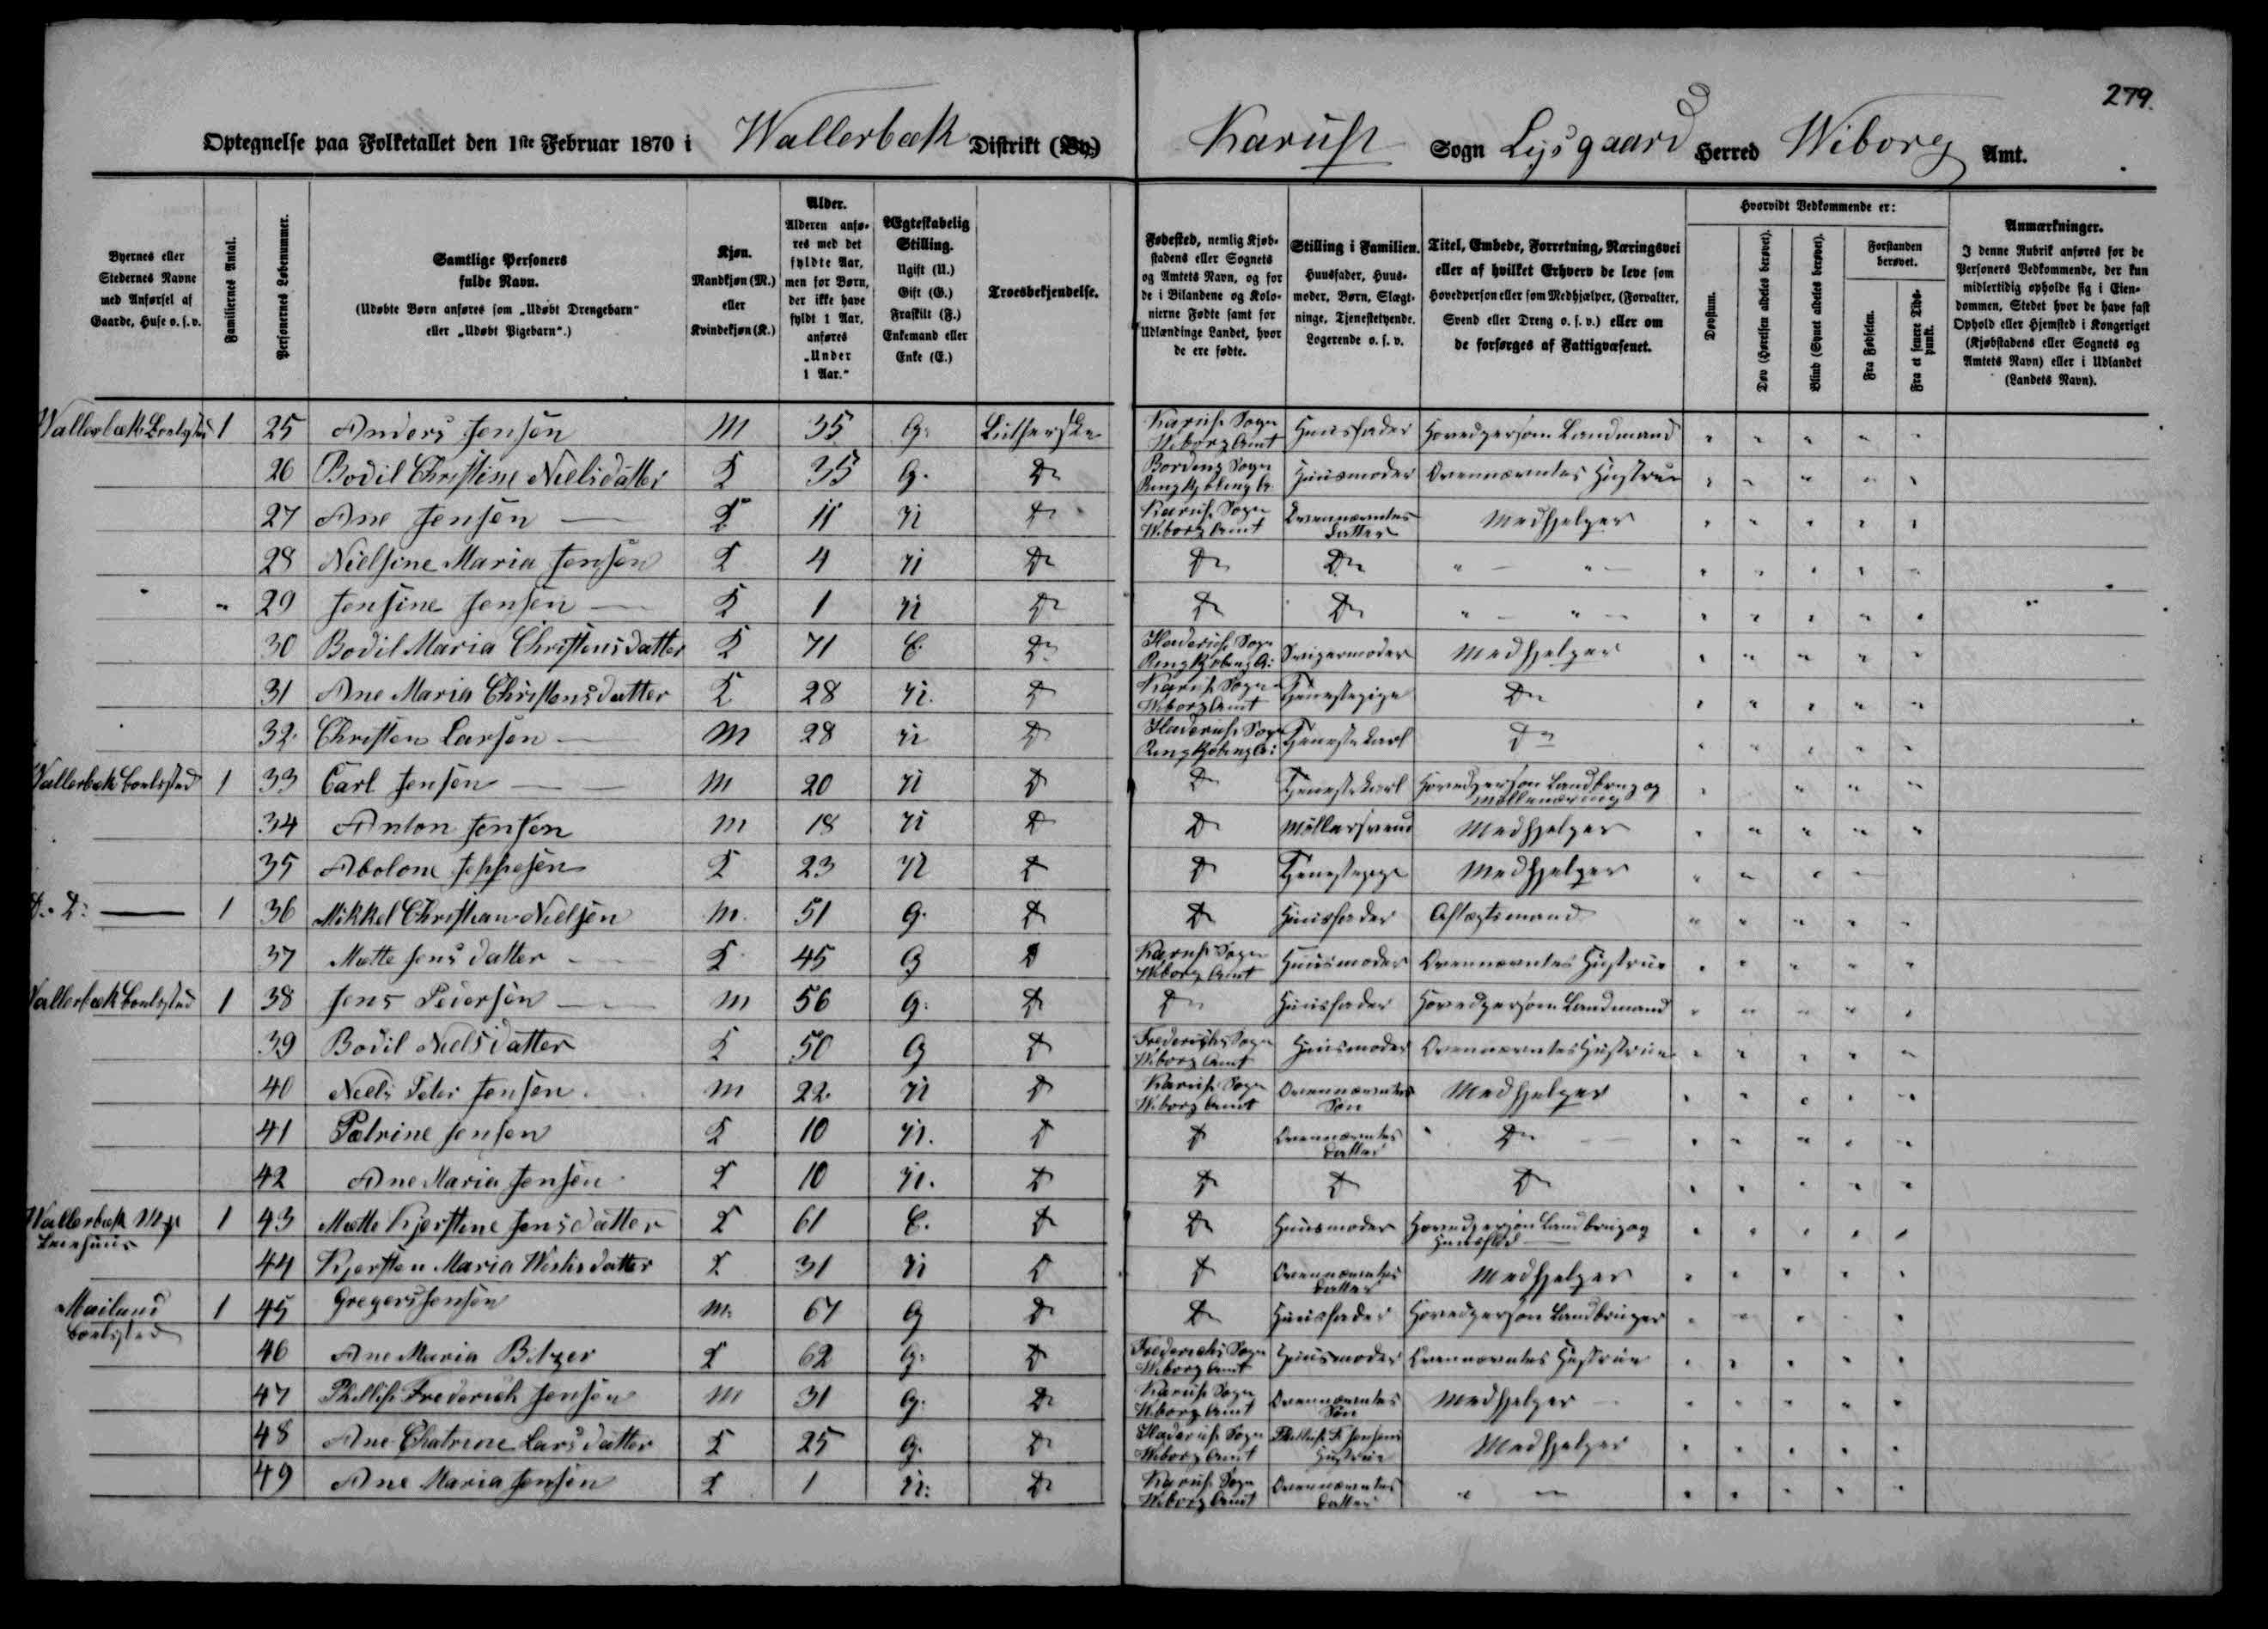 279.
Optegnelse paa Folketallet den 1ste Februar 1870 i Wallerbæk Distrikt (By) Karup Sogn Lysgaard Herred Wiborg Amt.
Byernes eller Stedernes Navne med Anførsel af Gaarde, Huse o. s. v.
Familiernes Antal.
Personernes Løbenummer.
Samtlige Personers fulde Navn.
(Udøbte Børn anføres som „Udøbt Drengebarn“ eller „Udøbt Pigebarn“.)
Kjøn.
Mandkjøn (M.) eller Kvindekjøn (K.)
Alder.
Alderen anføres med det fyldte Aar, men for Børn, der ikke have fyldt 1 Aar, anføres „Under 1 Aar.“
Ægteskabelig Stilling.
Ugift (U.) Gift (G.) Fraskilt (F.) Enkemand eller Enke (E.)
Troesbekjendelse.
Fødested, nemlig Kjøbstadens eller Sognets og Amtets Navn, og for de i Bilandene og Kolonierne Fødte samt for Udlændinge Landet, hvor de ere fødte.
Stilling i Familien.
Huusfader, Huusmoder, Børn, Slægtninge, Tjenestetyende, Logerende o. s. v.
Titel, Embede, Forretning, Næringsvei eller af hvilket Erhverv de leve som Hovedperson eller som Medhjælper, (Forvalter, Svend eller Dreng o. s. v.) eller om de forsørges af Fattigvæsenet.
Hvorvidt Vedkommende er:
Døvstum.
Døv (Hørelsen aldeles berøvet).
Blind (Synet aldeles berøvet).
Forstanden berøvet.
Fra Fødselen.
Fra et senere Tidspunkt.
Anmærkninger.
I denne Rubrik anføres for de Personers Vedkommende, der kun midlertidig opholde sig i Eiendommen, Stedet hvor de have fast Ophold eller Hjemsted i Kongeriget (Kjøbstadens eller Sognets og Amtets Navn) eller i Udlandet (Landets Navn).
Wallerbæk 1 25 Anders Jensen M 35 G. Lutherske Karup Sogn Wiborg Amt Huusfader Hovedperson Landmand
26 Bodil Christine Nielsdatter K 35 G. Do Bording Sogn Ringkjøbing A. Huusmoder Ovennævntes Hustrue
27 Ane Jensen K 11 U Do Karup Sogn Wiborg Amt Ovennævntes Datter Medhjelper
28 Nielsine Maria Jensen K 4 U Do Do Do " "
29 Jensine Jensen K 1 U Do Do Do " "
30 Bodil Maria Christensdatter K 71 E. Do Haderup Sogn Ringkjøbing A: Svigermoder Medhjelper
31 Ane Maria Christensdatter K 28 U. Do Karup Sogn Wiborg Amt Tjenestepige Do
32. Christen Larsen M 28 U Do Haderup Sogn Ringkjøbing A: Tjenestekarl Do
Wallerbæk Boelsted 1 33 Carl Jensen M 20 U Do Do Tjenestekarl Hovedperson Landbrug og Møllenæring
34 Anton Jensen M 18 U Do Do Møllersvend Medhjelper
35 Abolone Jeppesen K 23 U Do Do Tjenestepige Medhjelper
D. D: 1 36 Mikkel Christian Nielsen M. 51 G. Do Do Huusfader Aftægtsmand
37 Mette Jensdatter K 45 G Do Karup Sogn Wiborg Amt Huusmoder Ovennævntes Hustrue
Wallerbæk Boelsted 1 38 Jens Peiersen M 56 G: Do Do Huusfader Hovedperson Landmand
39 Bodil Nielsdatter K 50 G Do Frederichs Sogn Wiborg Amt Huusmoder Ovennævntes Hustrue
40 Niels Peter Jensen M 22. U Do Karup Sogn Wiborg Amt Ovennævntes Søn Medhjelper
41 Pætrine Jensen K 10 U. Do Do Ovennævntes Datter Do
42 Ane Maria Jensen K 10 U. Do Do Do Do
Wallerbæk 1 43 Mætte Kjerstine Jensdatter K 61 E. Do Do Huusmoder Hovedperson Landbrug og Huusflid
44 Kjersten Maria K 31 U Do Do Ovennævntes Datter Medhjelper
Boelsted 1 45 Gregers Jensen M. 67 G Do Do Huusfader Hovedperson Landbruger
46 Ane Maria Bitzer K 62 G. Do Frederichs Sogn Wiborg Amt Huusmoder Ovennævntes Hustrue
47 Phillip Frederich Jensen M 31 G. Do Karup Sogn Wiborg Amt Ovennævntes Søn Medhjelper
48 Ane Chatrine Larsdatter K 25 G. Do Haderup Sogn Wiborg Amt Phillip F. Jensens Hustrue Medhjelper
49 Ane Maria Jensen K 1 U: Do Karup Sogn Wiborg Amt Ovennævntes Datter "